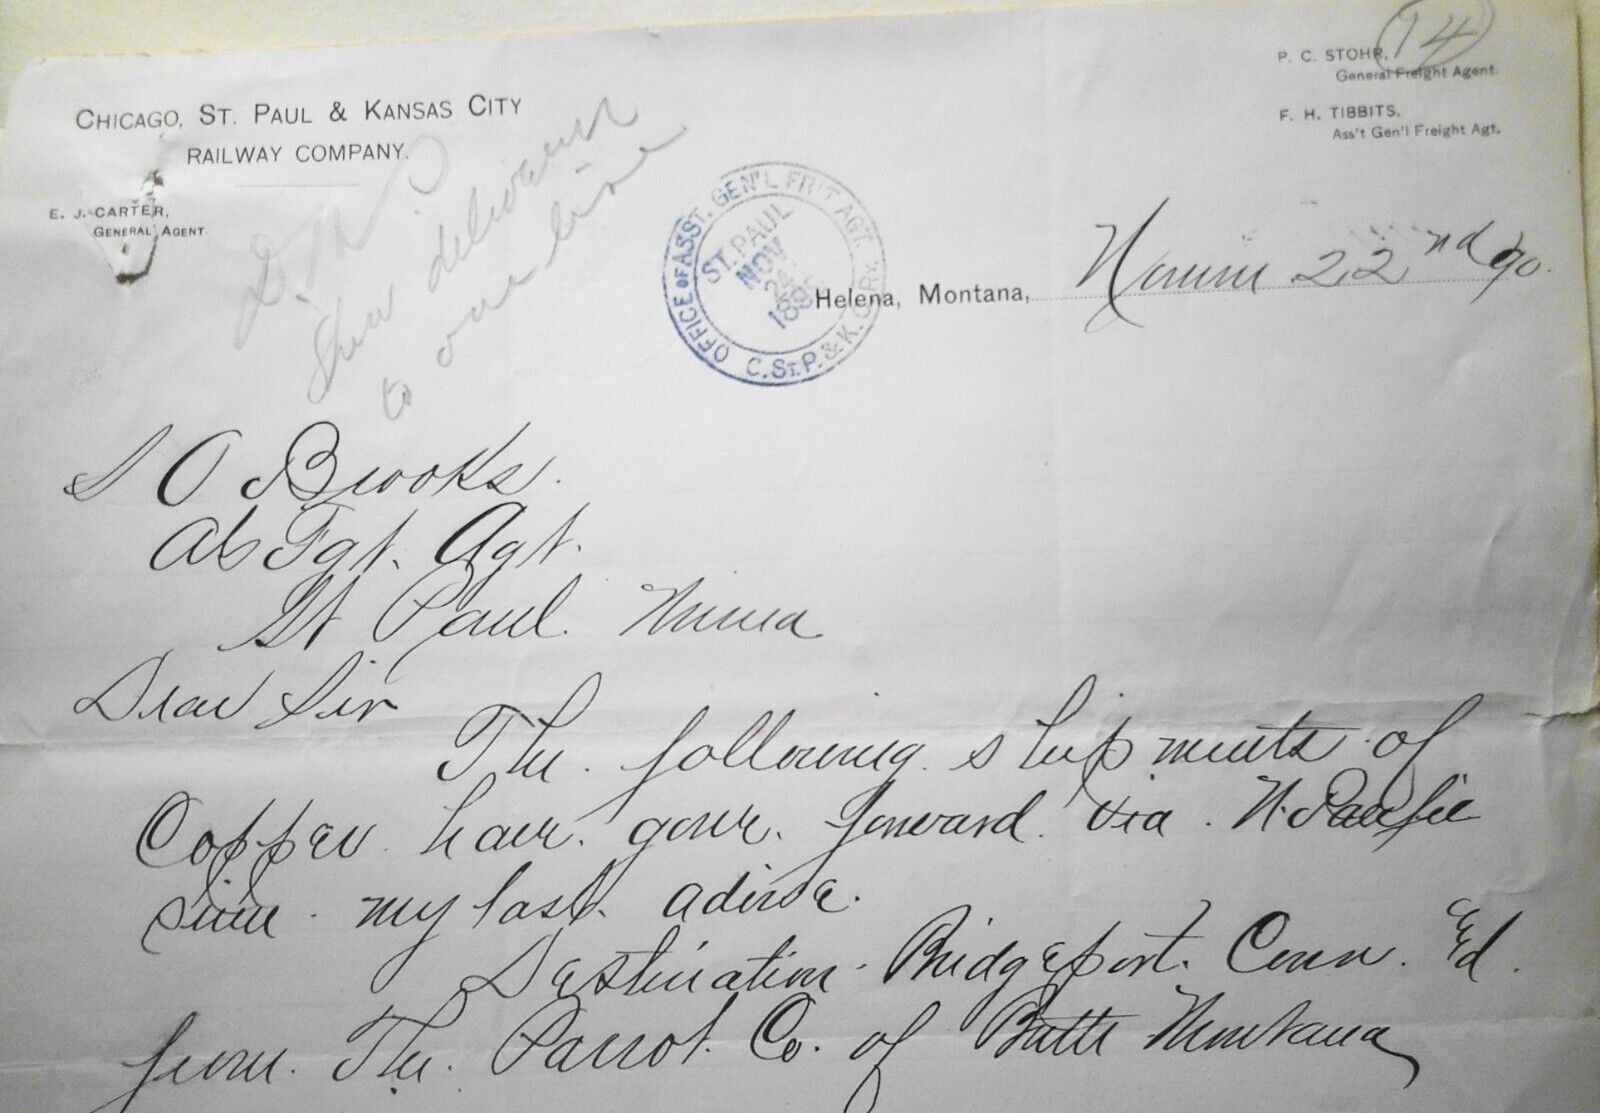 14
P. C. STOHR,
General Freight Agent.
F. H. TIBBITS,
Ass't Gen'l Freight Agt.
CHICAGO, ST. PAUL & KANSAS CITY
RAILWAY COMPANY.
E. J. CARTER,
GENERAL AGENT.
delivery
to our line
OFFICE OF ASST. GEN'L FR'T AGT.
C. ST. P. & K. C. RY.
ST. PAUL
NOV
189
Helena, Montana, 22nd 90.
O Brooks.
Fgt. Agt.
St Paul. Minna
Dear Sir
The following shipments of
Copper have gone forward via N. Pacific
since my last advice.
Destination Bridgeport. Conn.
from The Parrot Co. of Butte Montana